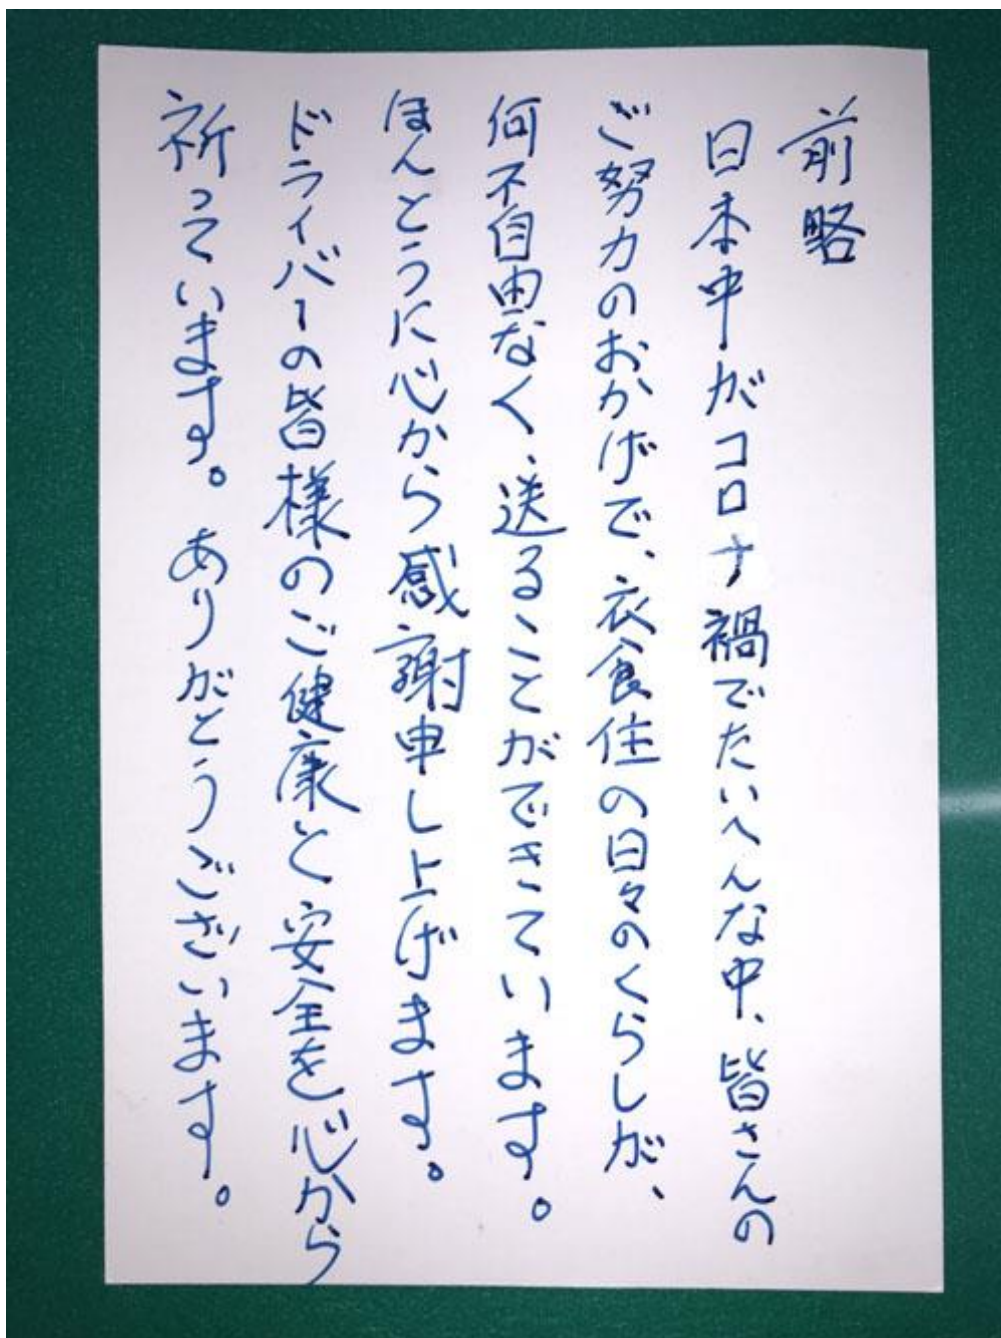 前略
日本中がコロナ禍でたいへんな中、皆さんの
ご努力のおかげで、衣食住の日々のくらしが、
何不自由なく、送ることができています。
ほんとうに心から感謝申し上げます。
ドライバーの皆様のご健康と安全を心から
祈っています。ありがとうございます。